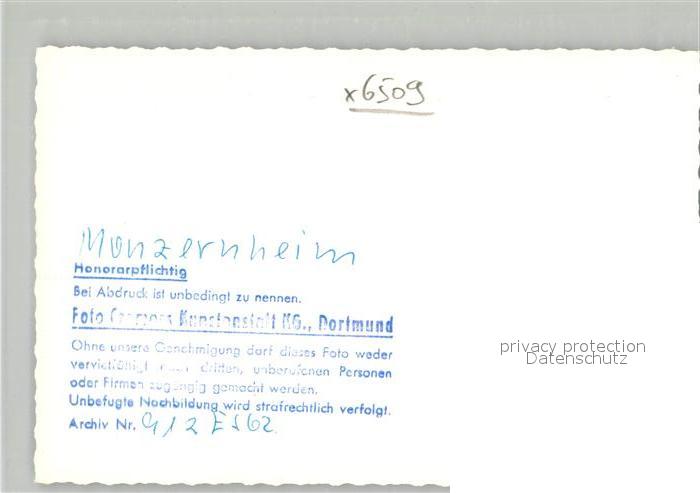 x6509
Monzernheim
Honorarpflichtig
Bei Abdruck ist unbedingt zu nennen.
Foto Kunstanstalt KG., Dortmund
Ohne unsere Genehmigung darf dieses Foto weder
vervielfältigt dritten, unberufenen Personen
oder Firmen zugängig gemacht werden.
Unbefugte Nachbildung wird strafrechtlich verfolgt.
Archiv Nr. 912
privacy protection
Datenschutz